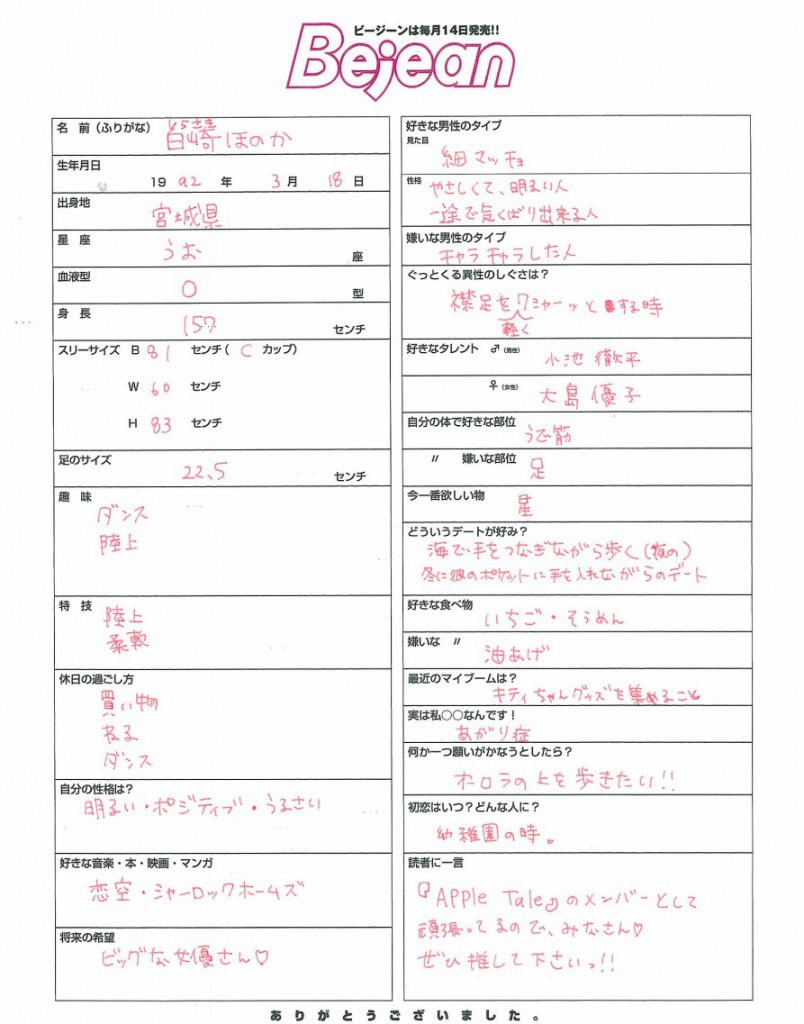 ビージーンは毎月14日発売!!
Bejean
名 前（ふりがな） しらさき
白崎ほのか
生年月日
19 92 年 3 月 18 日
出身地
宮城県
星 座
うお 座
血液型
O 型
身 長
157 センチ
スリーサイズ B 81 センチ( C カップ)
W 60 センチ
H 83 センチ
足のサイズ
22.5 センチ
趣 味
ダンス
陸上
特 技
陸上
柔軟
休日の過ごし方
買い物
ねる
ダンス
自分の性格は?
明るい・ポジティブ・うるさい
好きな音楽・本・映画・マンガ
恋空・シャーロックホームズ
将来の希望
ビッグな女優さん♡
好きな男性のタイプ
見た目
細マッチョ
性格 やさしくて、明るい人
一途で気くばり出来る人
嫌いな男性のタイプ
チャラチャラした人
ぐっとくる異性のしぐさは?
襟足をワシャーッとする時
軽く
好きなタレント ♂（男性）
小池徹平
♀（女性）
大島優子
自分の体で好きな部位
うで筋
〃 嫌いな部位
足
今一番欲しい物
星
どういうデートが好み?
海で手をつなぎながら歩く(夜の)
冬に彼のポケットに手を入れながらのデート
好きな食べ物
いちご・そうめん
嫌いな 〃
油あげ
最近のマイブームは?
キティちゃんグッズを集めること
実は私○○なんです!
あがり症
何か一つ願いがかなうとしたら?
オーロラの上を歩きたい!!
初恋はいつ?どんな人に?
幼稚園の時。
読者に一言
『APPle Tale』のメンバーとして
頑張ってるので、みなさん♡
ぜひ推して下さいっ!!
ありがとうございました。